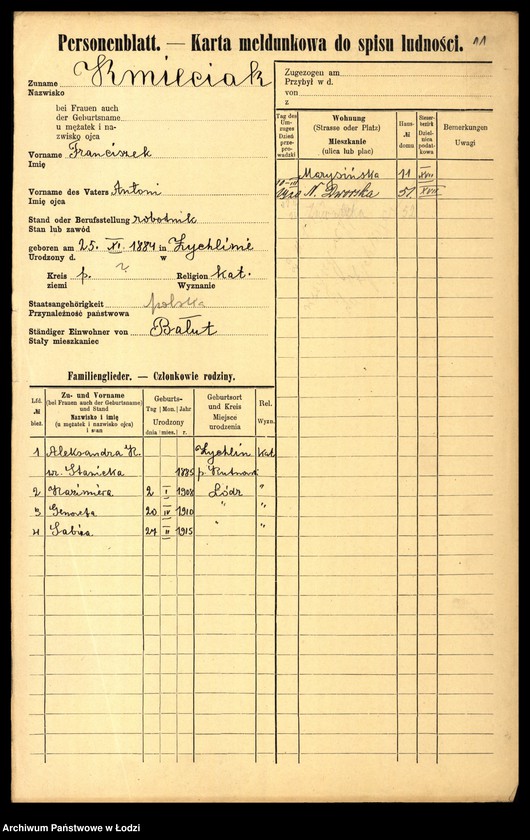 Personenblatt. — Karta meldunkowa do spisu ludności. 11
Zuname Kmieciak
Nazwisko
bei Frauen auch
der Geburtsname
u mężatek i na-
zwisko ojca
Vorname Franciszek
Imię
Vorname des Vaters Antoni
Imię ojca
Stand oder Berufsstellung robotnik
Stan lub zawód
geboren am 25. XI. 1884 in Żychlinie
Urodzony d. w
Kreis p. ? Religion kat.
ziemi Wyznanie
Staatsangehörigkeit polska
Przynależność państwowa
Ständiger Einwohner von Bałut
Stały mieszkaniec
Zugezogen am
Przybył w d.
von
z
Tag des Um-zuges Dzień prze-pro-wadzki
Wohnung (Strasse oder Platz) Mieszkanie (ulica lub plac)
Haus- № domu
Steuer-bezirk Dziel-nica podat-kowa
Bemerkungen Uwagi
Marysińska 11 XVII
N. Dworska 51 XVII
Familienglieder. — Członkowie rodziny.
Lfd. № bież.
Zu- und Vorname (bei Frauen auch der Geburtsname) und Stand Nazwisko i imię (u mężatek i nazwisko ojca) i stan
Geburts- Tag Mon. Jahr Urodzony dnia mies. r.
Geburtsort und Kreis Miejsce urodzenia
Rel. Wyzn.
1 Aleksandra K. Żychlin kat
1885
2 Kazimiera 2 I 1908 Łódź "
3 Genowefa 20 IV 1910 " "
4 Sabina 27 II 1915 " "
Archiwum Państwowe w Łodzi